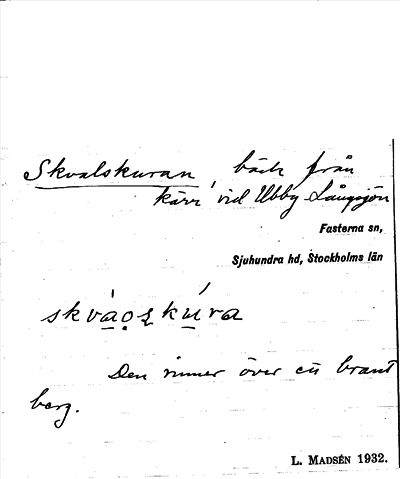 Skvalskuran, bäck från
kärr vid Ubby Långsjön
Fasterna sn,
Sjuhundra hd, Stockholms län
skvàọskúra
Den rinner över en brant
berg.
L. MADSÉN 1932.